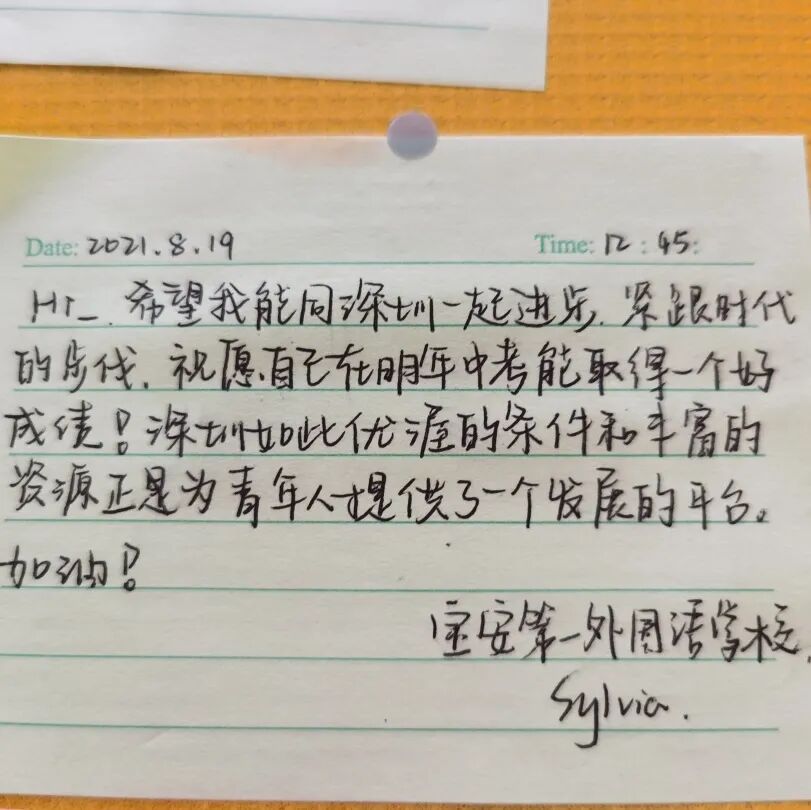 Date: 2021.8.19 Time: 12:45:
Hi_. 希望我能同深圳一起进步. 紧跟时代
的步伐. 祝愿自己在明年中考能取得一个好
成绩！深圳如此优渥的条件和丰富的
资源正是为青年人提供了一个发展的平台。
加油！
宝安第一外国语学校.
Sylvia.